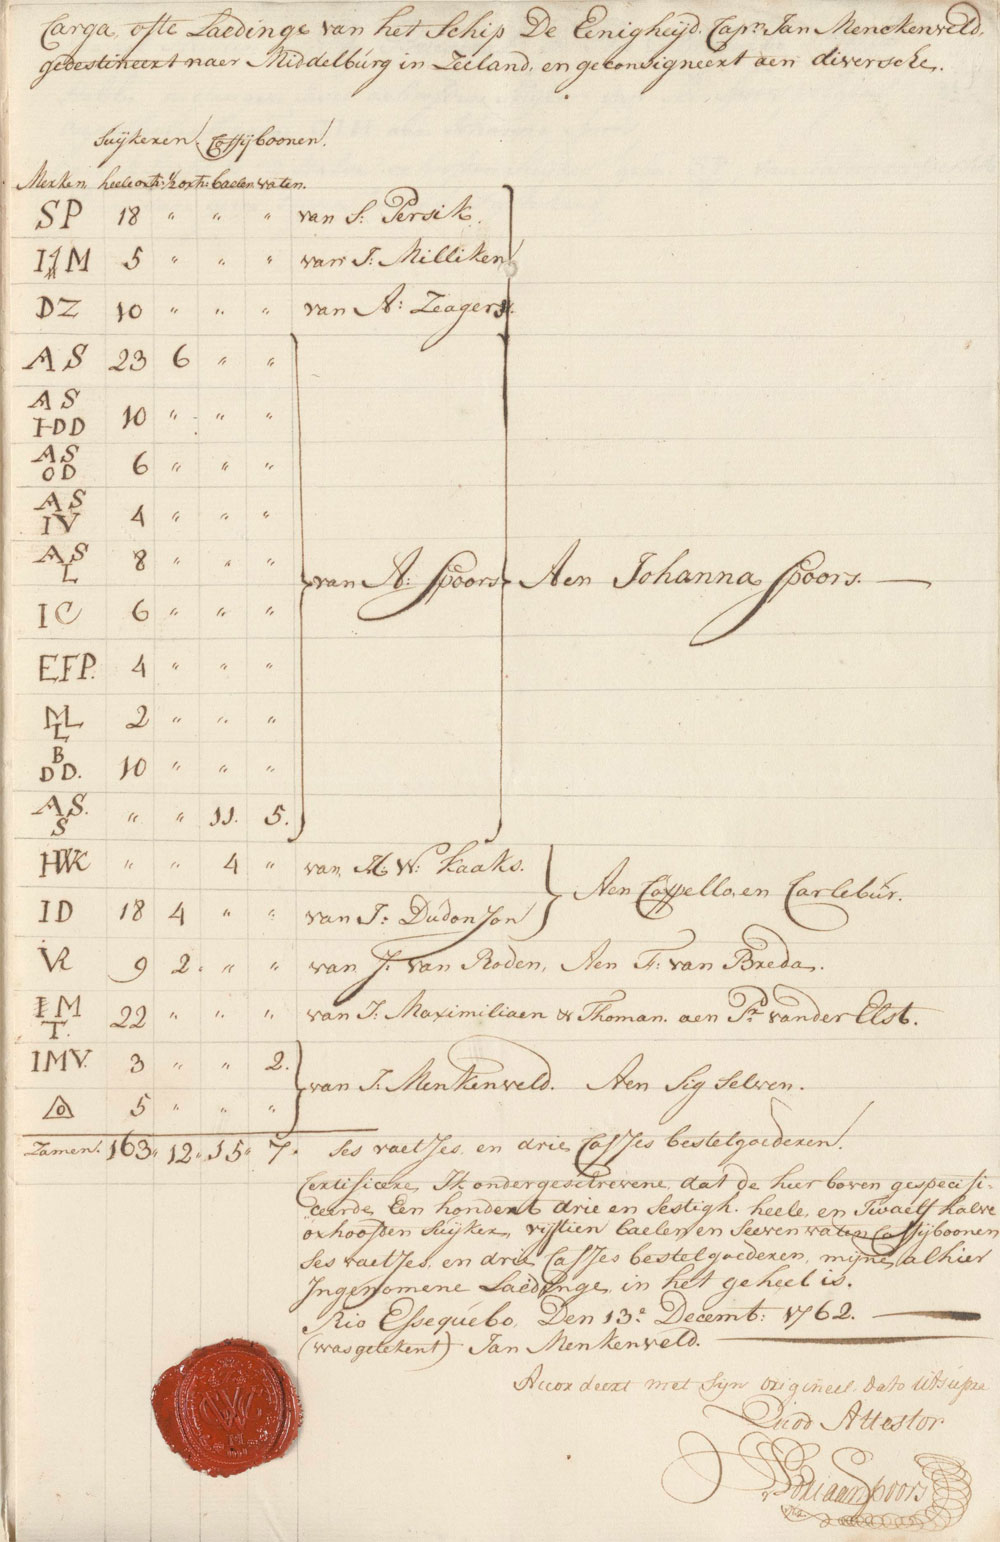 Carga, ofte Laedinge van het Schip De Eenigheijd, Capn. Jan Menckenveld,
gedestineert naer Middelburg in Zeeland, en geconsigneert aen diversche.
Suijkeren. Coffijboonen.
Merken, heele oxh: ½ oxh: baelen vaten.
SP 18 " " " van S: Persik.
IM 5 " " " van J: Milliken
DZ 10 " " " van A: Zeagers.
AS 23 6 " "
AS
IDD 10 " " "
AS
OD 6 " " "
AS
IV 4 " " "
AS
L 8 " " "
van A: Spoors Aen Johanna Spoors.
IC 6 " " "
EFP. 4 " " "
ML
L 2 " " "
B
DD. 10 " " "
AS.
S " " 11. 5.
HWK " " 4 " van W: Kaaks.
Aen Coppello, en Carlebur.
ID 18 4 " " van J: Dudonjon
VR 9 2. " " van J: van Roden, Aen F: van Breda.
IM
T. 22 " " " van J: Maximiliaen & Thoman. aen Pr. vander Elst.
IMV. 3 " " 2.
van J: Menkenveld. Aen Sig Selven.
O 5 " " "
Zamen. 163. 12. 15. 7. Ses vaetjes, en drie Casjes bestelgoederen.
Certificere Ik ondergeschrevene, dat de hier boven gespecifi-
ceerde, Een hondert drie en sestigh heele, en Twaelf halve
oxhoofden suijker, vijftien baelen, en seeven vaten Coffijboonen
ses vaetjes, en drie Casjes bestelgoederen, mijne alhier
Ingenomene Laedinge, in het geheel is.
Rio Essequebo, Den 13e. Decemb: 1762.
(was getekent) Jan Menkenveld.
Accordeert met Syn origineel. dato utsupra
Quod Attestor
Adriaan Spoors